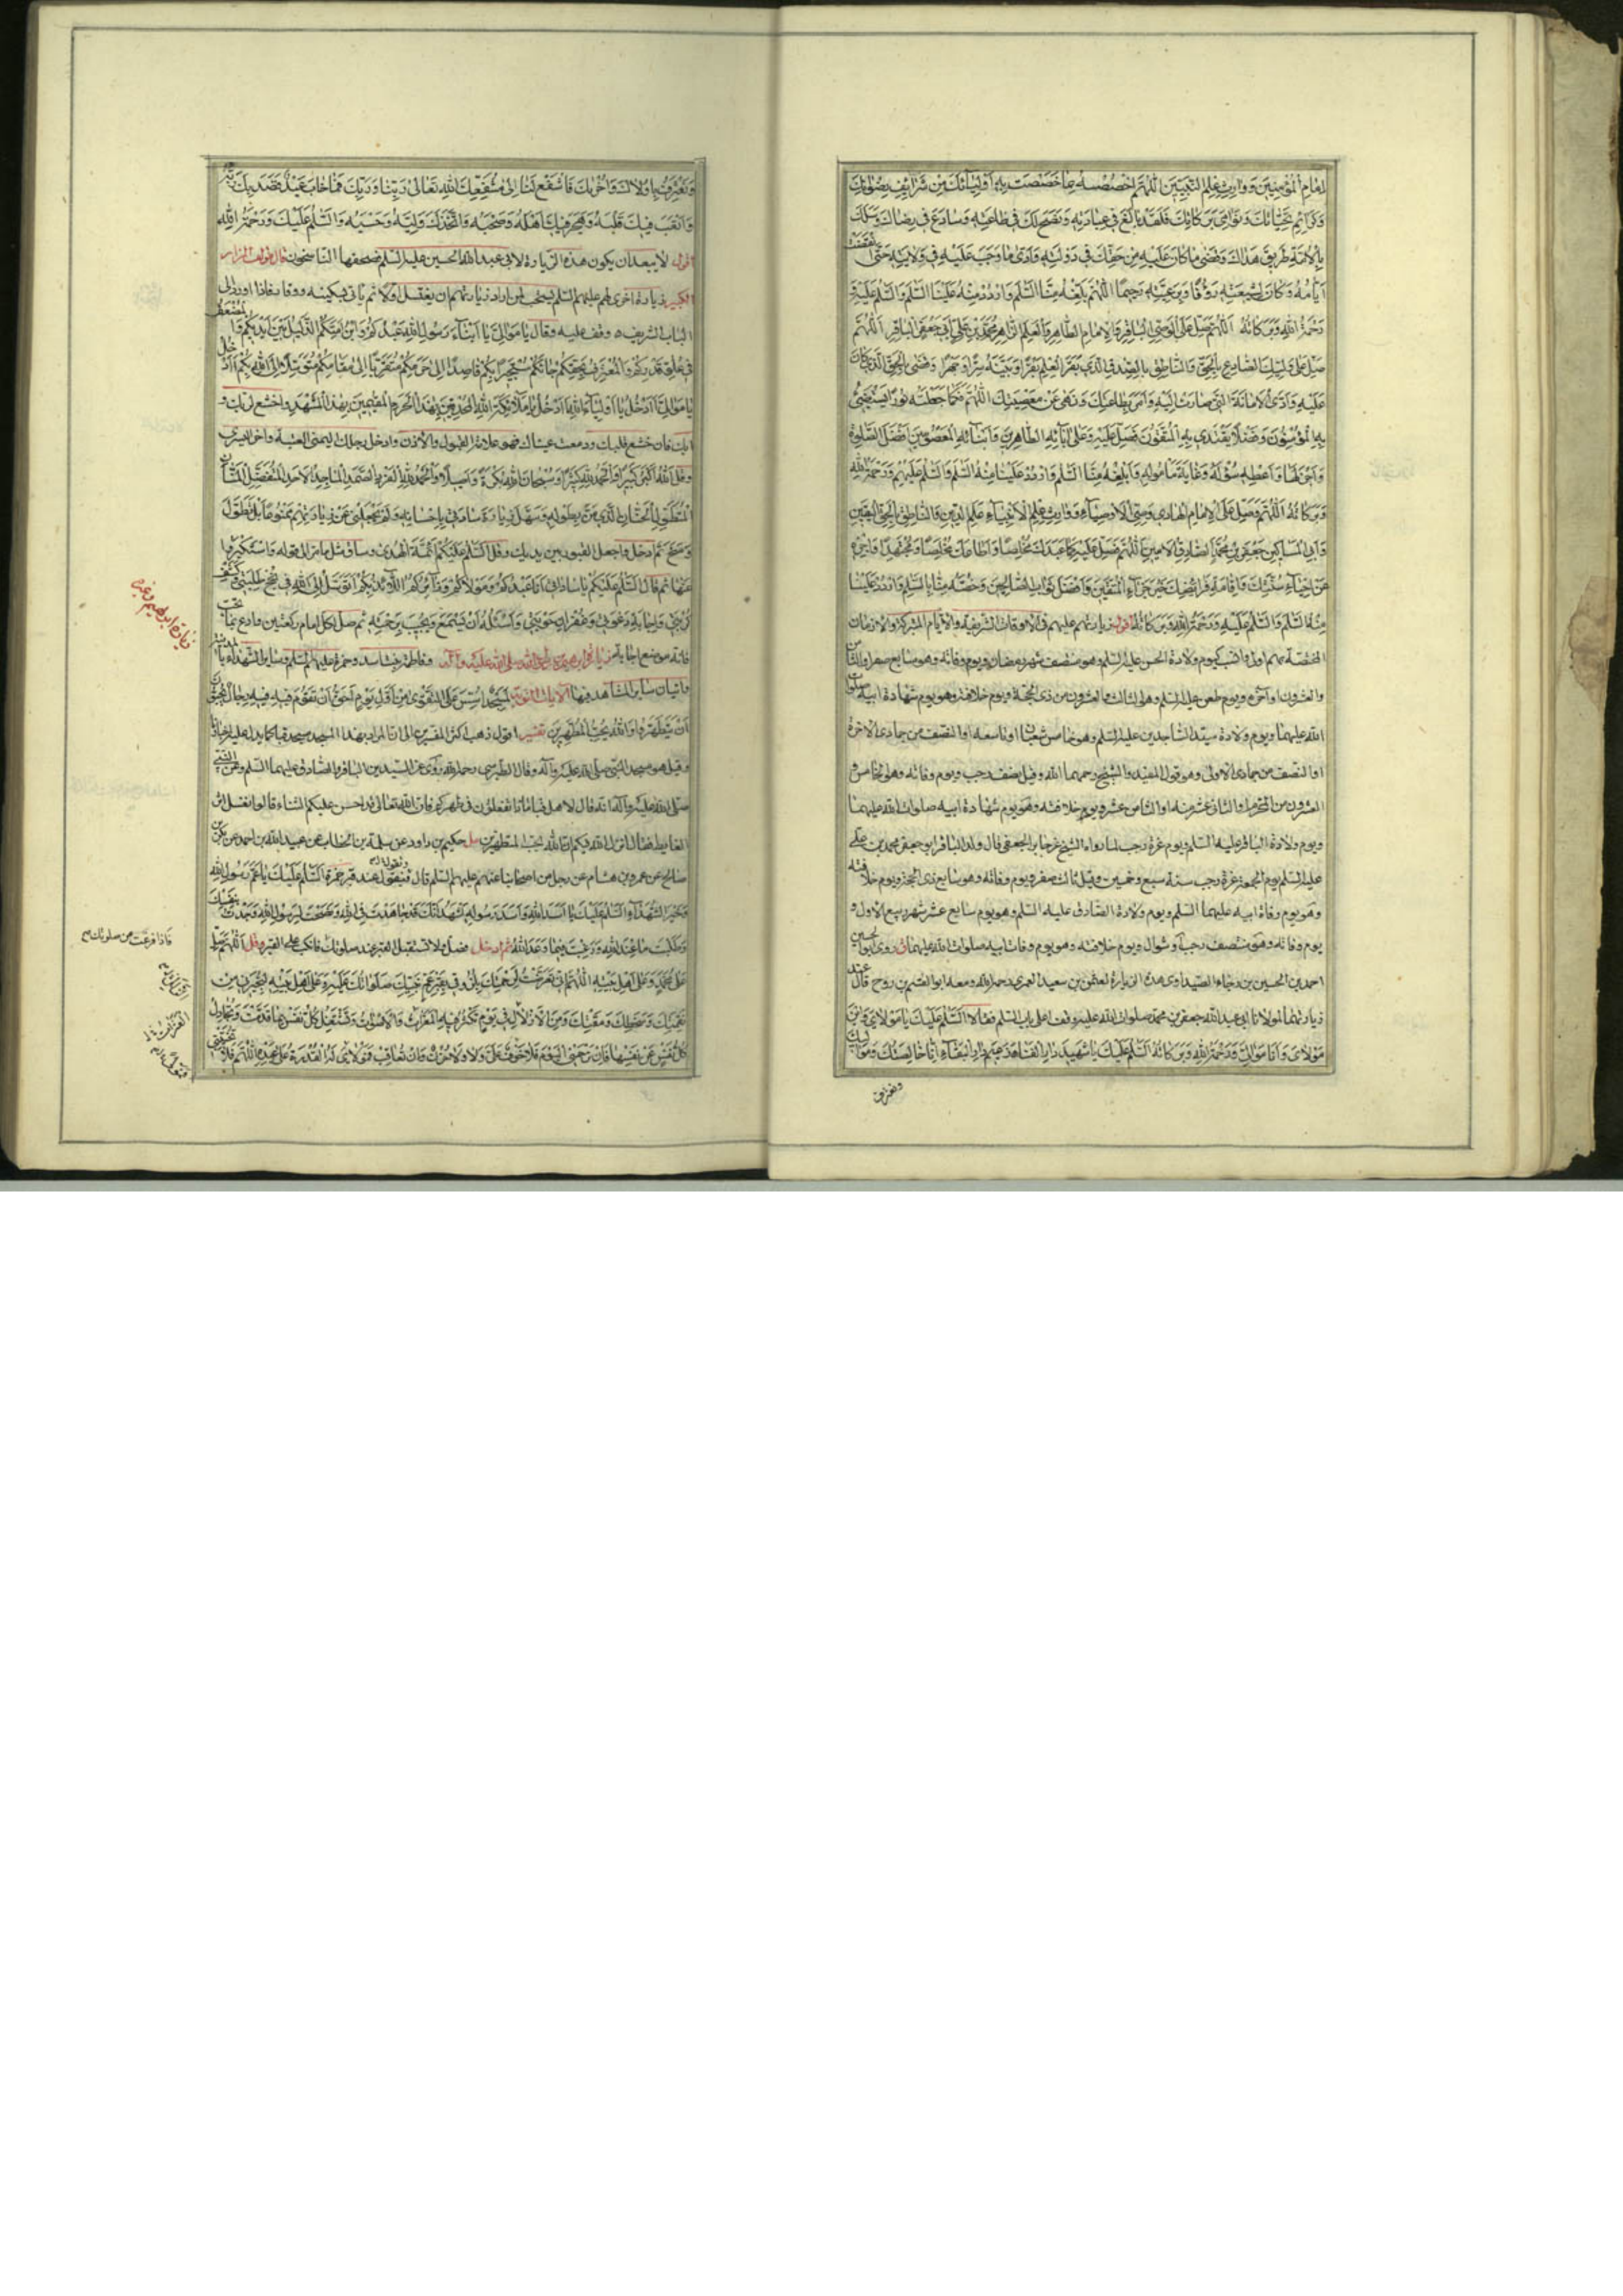 امام المؤمنين ووارث علم النبيين اللهم اخصصه بما خصصت به اوليائك من شرايف رضوانك
وكرايم تحياتك ونوامي بركاتك فلقد بالغ في عبادته ونصح لك في طاعته وسارع في رضاك وسلك
بالامة طريق هداك وقضى ما كان عليه من حقك في دولته وادى ما وجب عليه في ولايته حتى انقضت
ايامه وكان بشيعته رؤفا وبرعيته رحيما اللهم بلغه منا السلم واردد منه علينا السلم والسلم عليه
ورحمة الله وبركاته اللهم صل على الوصي الباقر والامام الطاهر والعلم الظاهر محمد بن علي ابي جعفر الباقر اللهم
صل على وليك الصادع بالحق والناطق بالصدق الذي بقر العلم بقرا وبينه سرا وجهرا وقضى بالحق الذي كان
عليه وادى الامانة التي صارت اليه وامر بطاعتك ونهى عن معصيتك اللهم فكما جعلته نورا يستضئ
به المؤمنون وفضلا يقتدي به المتقون فصل عليه وعلى آبائه الطاهرين وابنائه المعصومين افضل الصلوة
واجزلها واعطه سؤله وغاية مأموله وابلغه منا السلم واردد علينا منه السلم والسلم عليهم ورحمة الله
وبركاته اللهم وصل على الامام الهادي وصي الاوصياء ووارث علم الانبياء علم الدين والناطق بالحق اليقين
وابي المساكين جعفر بن محمد الصادق الامين اللهم فصل عليه كما عبدك مخلصا واطاعك مخلصا ومجتهدا واجزه
عن احياء سنتك واقامة فرائضك خير جزاء المتقين وافضل ثواب الصالحين وخصه منا بالسلم واردد علينا
منه السلم والسلم عليه ورحمة الله وبركاته اقول زيارتهم عليهم في الاوقات الشريفة والايام المتبركة والازمان
المختصة بهم اولى وانسب كيوم ولادة الحسن عليه السلم وهو منتصف شهر رمضان ويوم وفاته وهو سابع صفر او الثامن
والعشرون او آخره ويوم طعن عليه السلم وهو الثالث والعشرون من ذي الحجة ويوم خلافته وهو يوم شهادة ابيه صلوات
الله عليهما ويوم ولادة سيد الساجدين عليه السلم وهو خامس شعبان او تاسعه او النصف من جمادى الآخرة
او النصف من جمادى الاولى وهو قول المفيد والشيخ رحمهما الله وقيل نصف رجب ويوم وفاته وهو الخامس و
العشرون من المحرم او الثاني عشر منه او الثامن عشر ويوم خلافته وهو يوم شهادة ابيه صلوات الله عليهما
ويوم ولادة الباقر عليه السلم ويوم غرة رجب لما رواه الشيخ عن جابر الجعفي قال ولد الباقر ابو جعفر محمد بن علي
عليه السلم يوم الجمعة غرة رجب سنة سبع وخمسين وقيل ثالث صفر ويوم وفاته وهو سابع ذي الحجة ويوم خلافته
وهو يوم وفاة ابيه عليهما السلم ويوم ولادة الصادق عليه السلم وهو يوم سابع عشر شهر ربيع الاول و
يوم وفاته وهو منتصف رجب او شوال ويوم خلافته وهو يوم وفات ابيه صلوات الله عليهما روى ابو الحسين
احمد بن الحسين بن رجاء الصيداوي هذه الزيارة لعثمن بن سعيد العمري رحمه الله ومعه ابو القسم بن روح قال عند
زيارتهما لمولانا ابي عبد الله جعفر بن محمد صلوات الله عليه وقفا على باب السلم فقالا السلم عليك يا مولاي وابن
مولاي وانا مولاك ورحمة الله وبركاته السلم عليك يا شهيد دار الفنا وزعيم دار البقاء انا خالصتك ومواليك
ونعترف
ونعترف باولاك واخريك فاشفع لنا الى مشفعك الله تعالى ربنا وربك فما خاب عبد قصد بك ربه
واتعب فيك قلبه وهجر فيك اهله وصحبه واتخذك وليه وحسبه والسلم عليك ورحمة الله
اقول لا يبعد ان يكون هذه الزيارة لابي عبد الله الحسين عليه السلم فصحفها الناسخون قال مؤلف المزار
الكبير زيارة اخرى لهم عليهم السلم يستحب لمن اراد زيارتهم ان يغتسل اولا ثم ياتي بسكينة ووقار فاذا ورد الى
الباب الشريف وقف عليه وقال يا موالي يا ابناء رسول الله عبدكم وابن امتكم الذليل بين ايديكم والمضعف
في علو قدركم والمعترف بحقكم جائكم مستجيرا بكم قاصدا الى حرمكم متقربا الى مقامكم متوسلا الى الله بكم أأدخل
يا موالي أأدخل يا اولياء الله أأدخل يا ملائكة الله المحدقين بهذا الحرم المقيمين بهذا المشهد واخشع لربك و
ابك فان خشع قلبك ودمعت عيناك فهو علامة القبول والاذن وادخل رجلك اليمنى العتبة واخر اليسرى
وقل الله اكبر كبيرا والحمد لله كثيرا وسبحان الله بكرة واصيلا والحمد لله الفرد الصمد الماجد الاحد المتفضل المنان
المتطول الحنان الذي من بطوله وسهل زيارة ساداتي باحسانه ولم يجعلني عن زيارتهم ممنوعا بل تطول
ومنح ثم ادخل واجعل القبور بين يديك وقل السلم عليكم ائمة الهدى وساق مثل ما مر الى قوله واستكبروا
عنها ثم قال السلم عليكم يا ساداتي انا عبدكم ومولاكم وزائركم اللائذ بكم اتوسل الى الله في نجح طلبتي وكشف
كربتي واجابة دعوتي وغفران حوبتي واسئله ان يسمع ويجيب برحمته ثم صل لكل امام ركعتين وادع بما تحب
فانه موضع اجابة وفاطمة بنت اسد وحمزة عليهم السلم وساير الشهداء
واتيان ساير المشاهد فيها الآيات التوبة لمسجد اسس على التقوى من اول يوم احق ان تقوم فيه فيه رجال يحبون
ان يتطهروا والله يحب المطهرين تفسير اقول ذهب اكثر المفسرين الى ان المراد بهذا المسجد مسجد قبا
وقيل هو مسجد النبي صلى الله عليه وآله وقال الطبرسي رحمه الله روي عن السيدين الباقر والصادق عليهما السلم وعن النبي
صلى الله عليه وآله انه قال لاهل قبا ماذا تفعلون في طهركم فان الله تعالى قد احسن عليكم الثناء قالوا نغسل اثر
الغايط فقال انزل الله فيكم ان الله يحب المتطهرين مل حكيم بن داود عن سلمة بن الخطاب عن عبيد الله بن احمد عن بكر بن
صالح عن عمرو بن هشام عن رجل من اصحابنا عنهم عليهم السلم قال فتقول عند قبر حمزة السلم عليك يا عم رسول الله
وخير الشهداء السلم عليك يا اسد الله واسد رسوله اشهد انك قد جاهدت في الله ونصحت لرسول الله وجدت بنفسك
وطلبت ما عند الله ورغبت فيما وعد الله ثم ادخل فصل ولا تستقبل القبر عند صلوتك فانكب على القبر وقل اللهم صل
على محمد وعلى اهل بيته اللهم اني تعرضت لرحمتك بلزوقي بقبر عم نبيك صلواتك عليه وعلى اهل بيته لتجيرني من
نقمتك وسخطك ومقتك ومن الازلال في يوم تكثر فيه المعرات والاصوات وتشتغل كل نفس بما قدمت وتجادل
كل نفس عن نفسها فان ترحمني اليوم فلا خوف علي ولا حزن وان تعاقب فمولاي له القدرة على عبده اللهم فلا تخيبني
فاذا فرغت من صلوتك